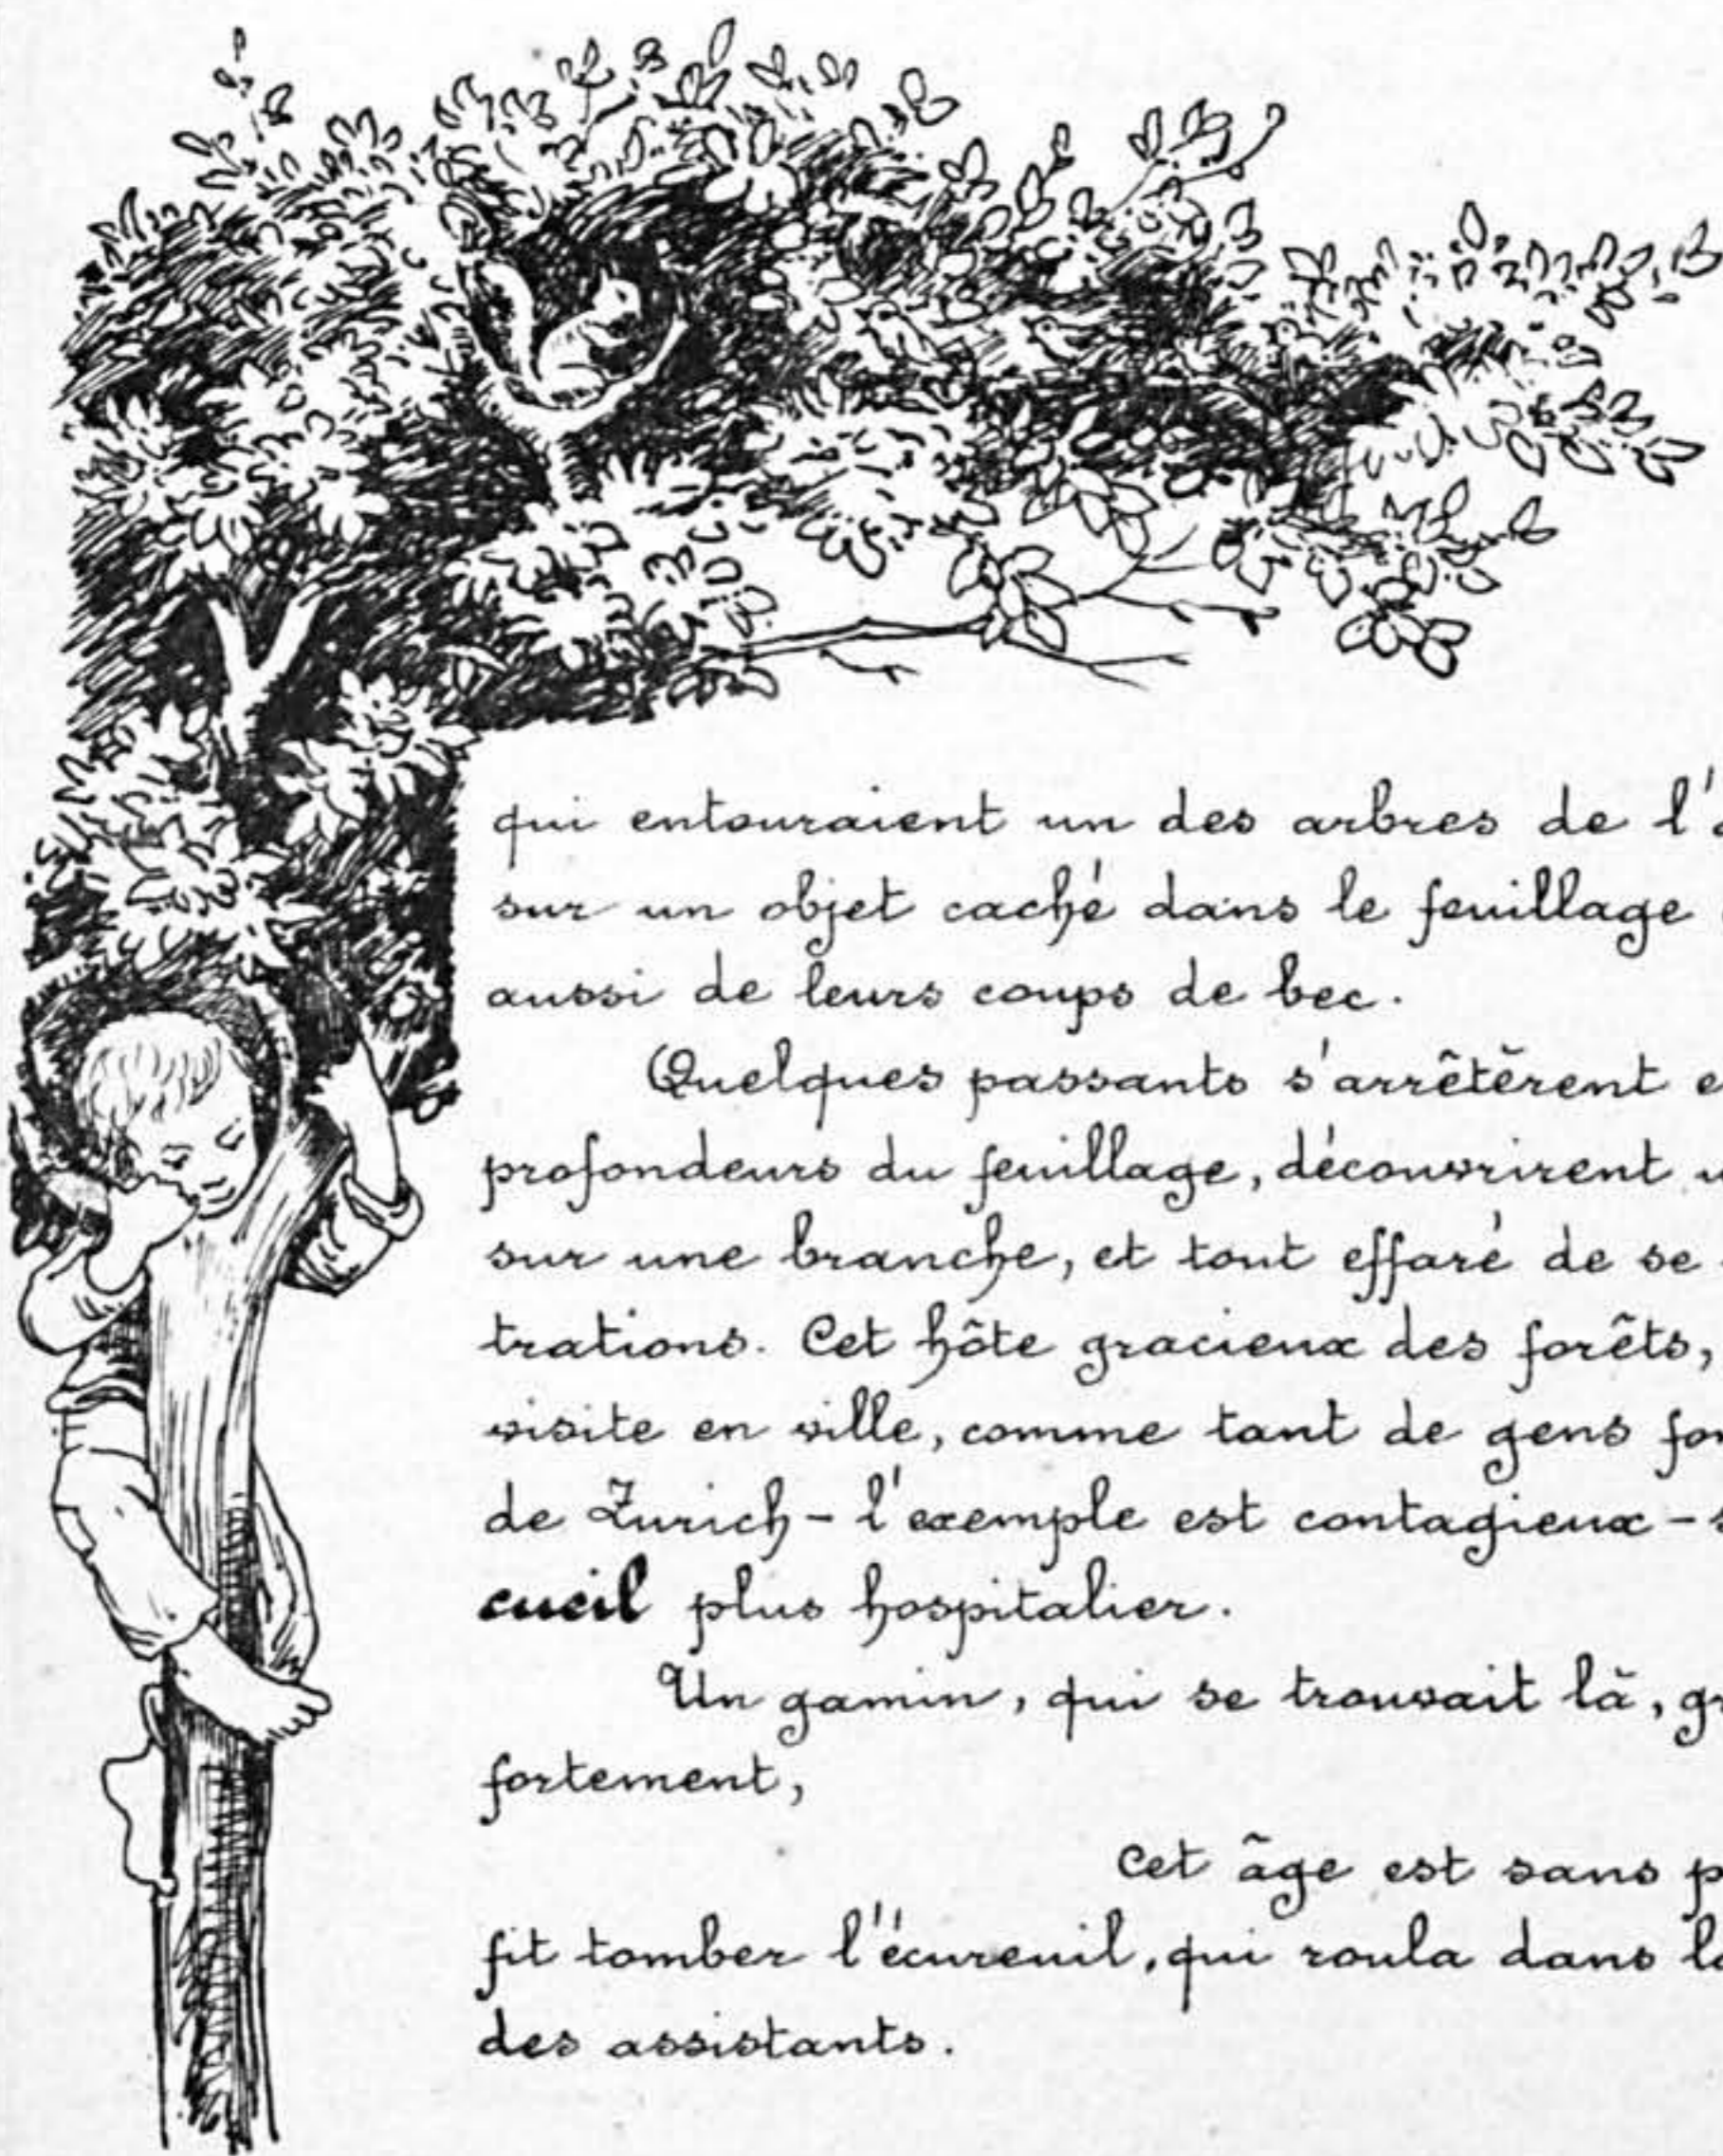 qui entouraient un des arbres de l'
sur un objet caché dans le feuillage
aussi de leurs coups de bec.
Quelques passants s'arrêtèrent
profondeurs du feuillage, découvrirent
sur une branche, et tout effaré de se
trations. Cet hôte gracieux des forêts,
visite en ville, comme tant de gens
de Zurich - l'exemple est contagieux -
cueil plus hospitalier.
Un gamin, qui se trouvait là,
fortement,
Cet âge est sans
fit tomber l'écureuil, qui roula dans
des assistants.